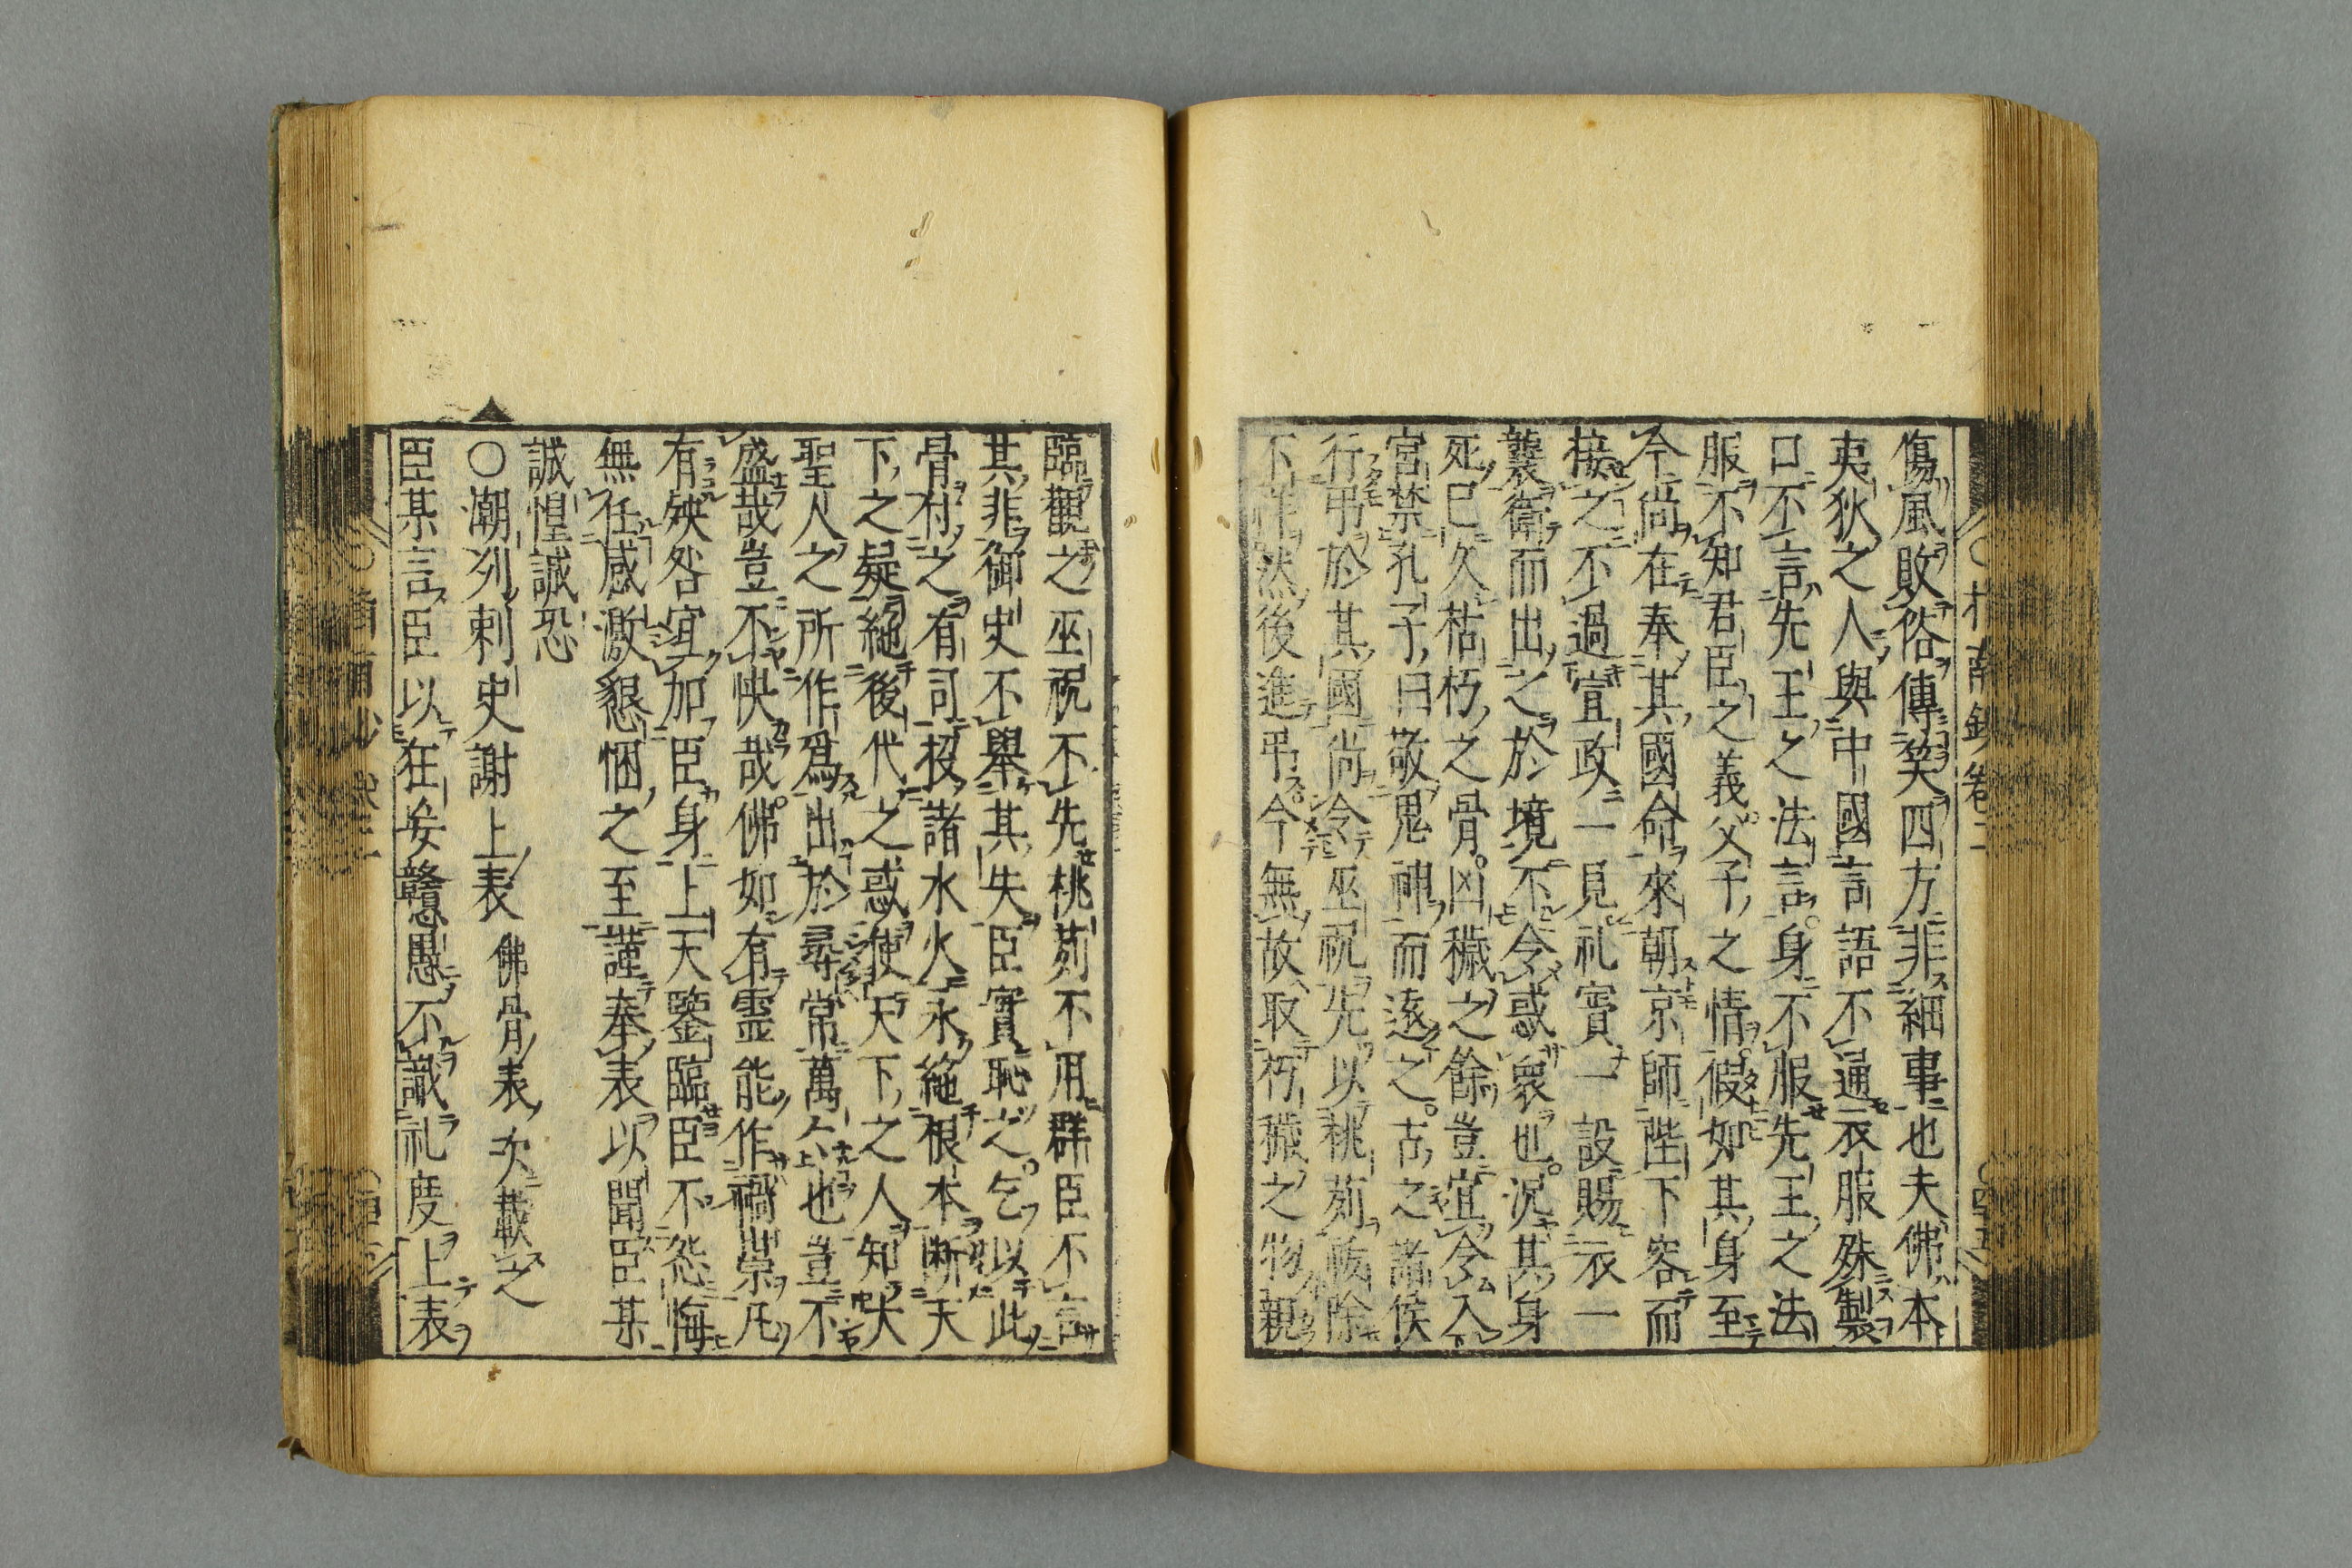 傷風敗俗傳笑四方非細事也夫佛本
夷狄之人與中國言語不通衣服殊製
口不言先王之法言身不服先王之法
服不知君臣之義父子之情假如其身至
今尚在奉其國命來朝京師陛下容而
接之不過宣政一見礼賓一設賜衣一
襲衛而出之於境不令惑衆也況其身
死已久枯朽之骨凶穢之餘豈宜令入
宮禁孔子曰敬鬼神而遠之古之諸侯
行弔於其國尚令巫祝先以桃茢祓除
不祥然後進弔今無故取朽穢之物親
臨觀之巫祝不先桃茢不用群臣不言
其非御史不舉其失臣實恥之乞以此
骨付之有司投諸水火永絶根本断天
下之疑絶後代之惑使天下之人知大
聖人之所作爲出於尋常萬〻也豈不
盛哉豈不快哉佛如有霊能作禍祟凡
有殃咎宜加臣身上天鑒臨臣不怨悔
無任感激懇悃之至謹奉表以聞臣某
誠惶誠恐
○潮刕刺史謝上表 佛骨表次載之
臣某言臣以狂妄戇愚不識礼度上表